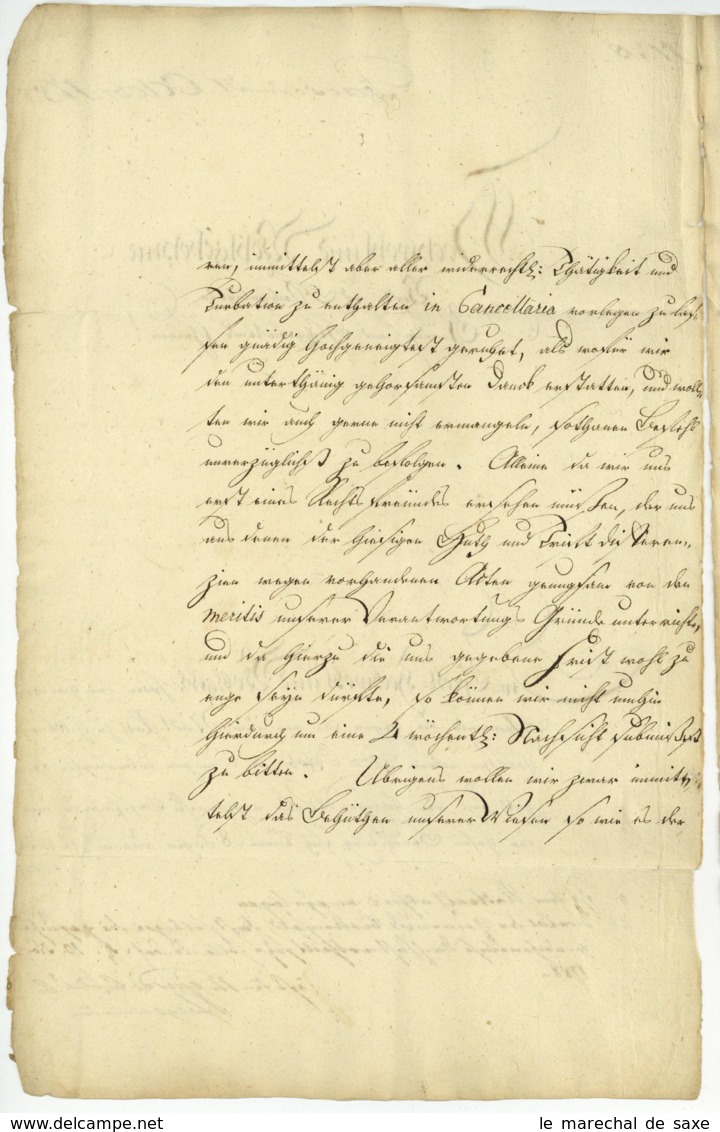 ren, immittelst aber aller widerrechtl: Thätigkeit und
Turbation zu enthalten in Cancellaria vorlegen zu las-
sen gnädig Hochgeneigtest geruhet, als wofür wir
den unterthänig gehorsamsten Danck erstatten, und woll-
ten wir auch gerne nicht ermangeln, sothanen Befehl
unverzüglichst zu befolgen. Alleine da wir uns
erst eines Rechts freundes ersehen müssen, der uns
aus denen der hiesigen Huth und Trifft differen-
zien wegen vorhandenen Acten genugsam von den
meritis unserer Verantwortungs Gründe unterrichte,
und da hierzu die uns gegebene Frist wohl zu
enge seyn dürfte, so können wir nicht umhin
hierdurch um eine 4 wöchentl: Nachsicht submissest
zu bitten. Übrigens wollen wir zwar immit-
telst das Behüthen unserer Wiesen so wie es der
le marechal de saxe